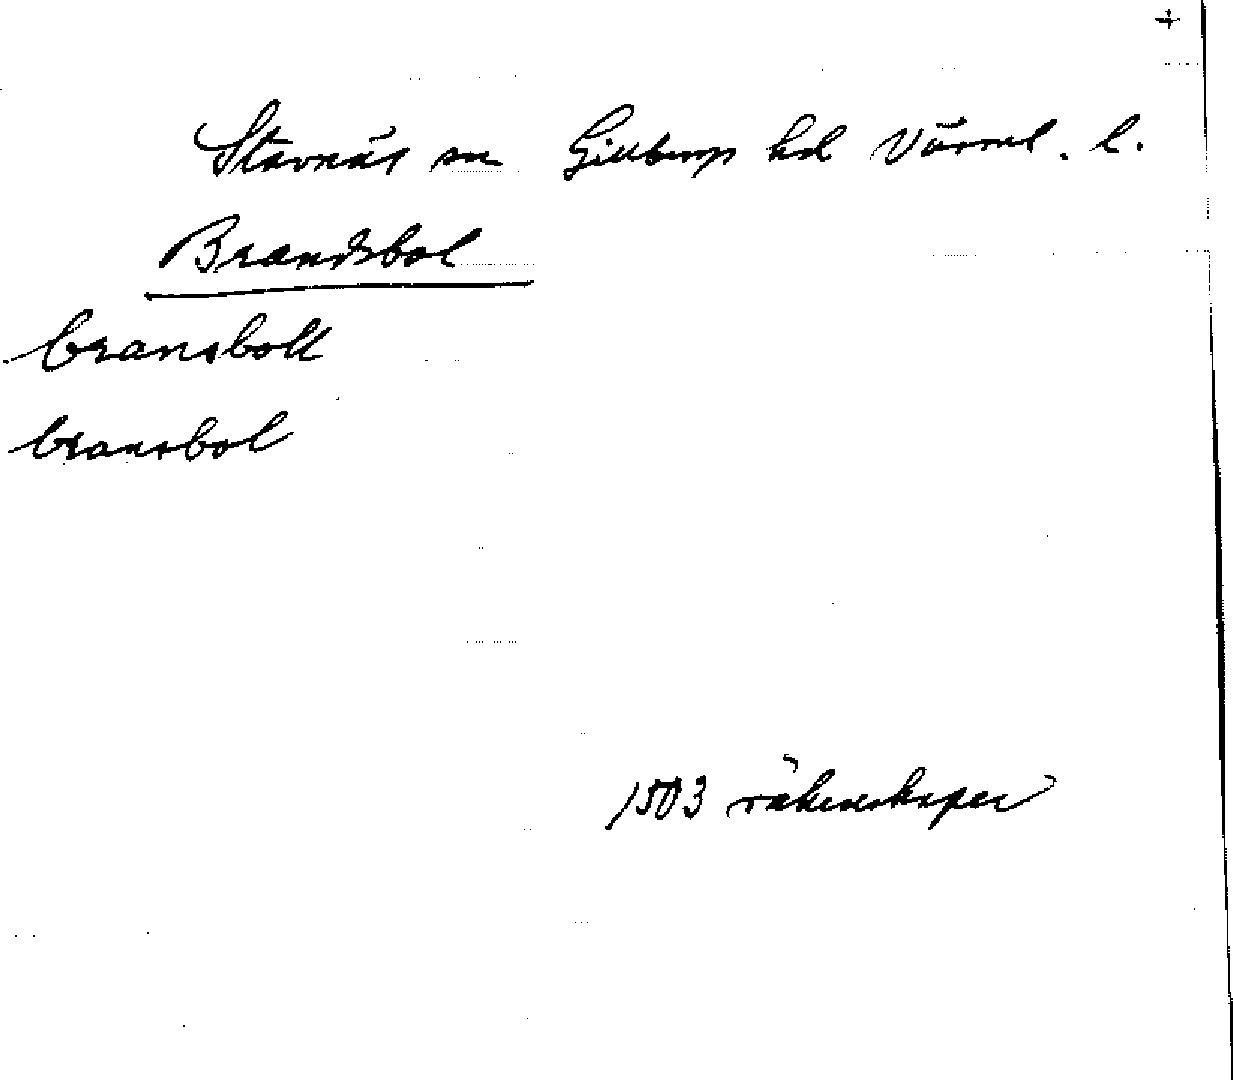 +
Stavnäs sn Gillberg hd Värml. l.
Brandsbol
bransboll
bransbol
1503 räkenskaper